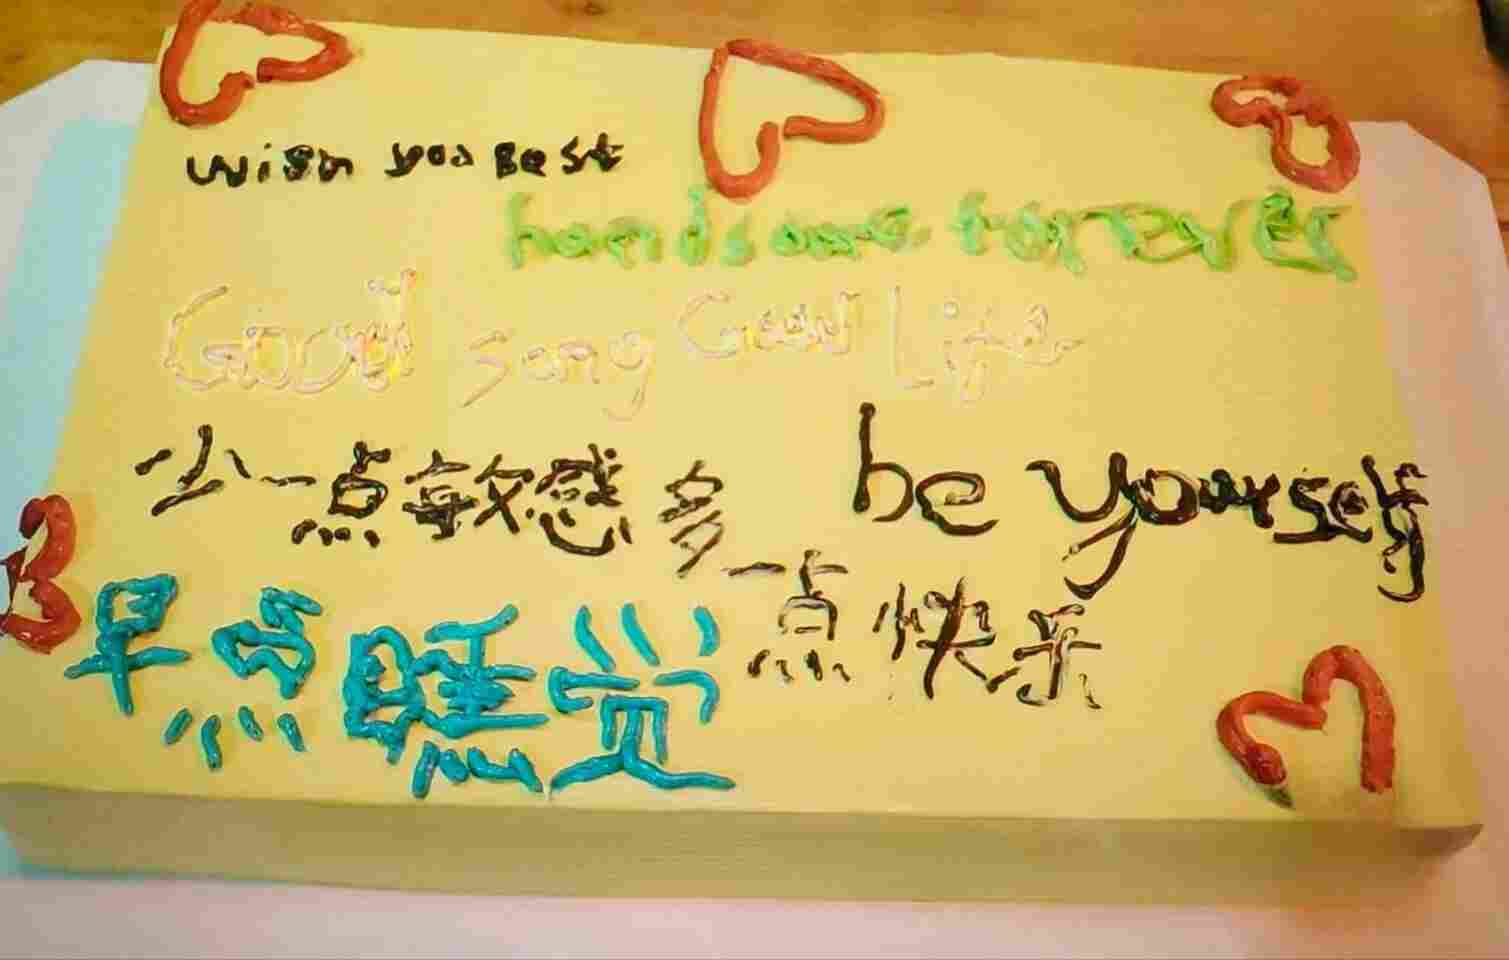 wish you Best
handsome forever
Good song Good Life
少一点敏感 多一点快乐
be yourself
早点睡觉